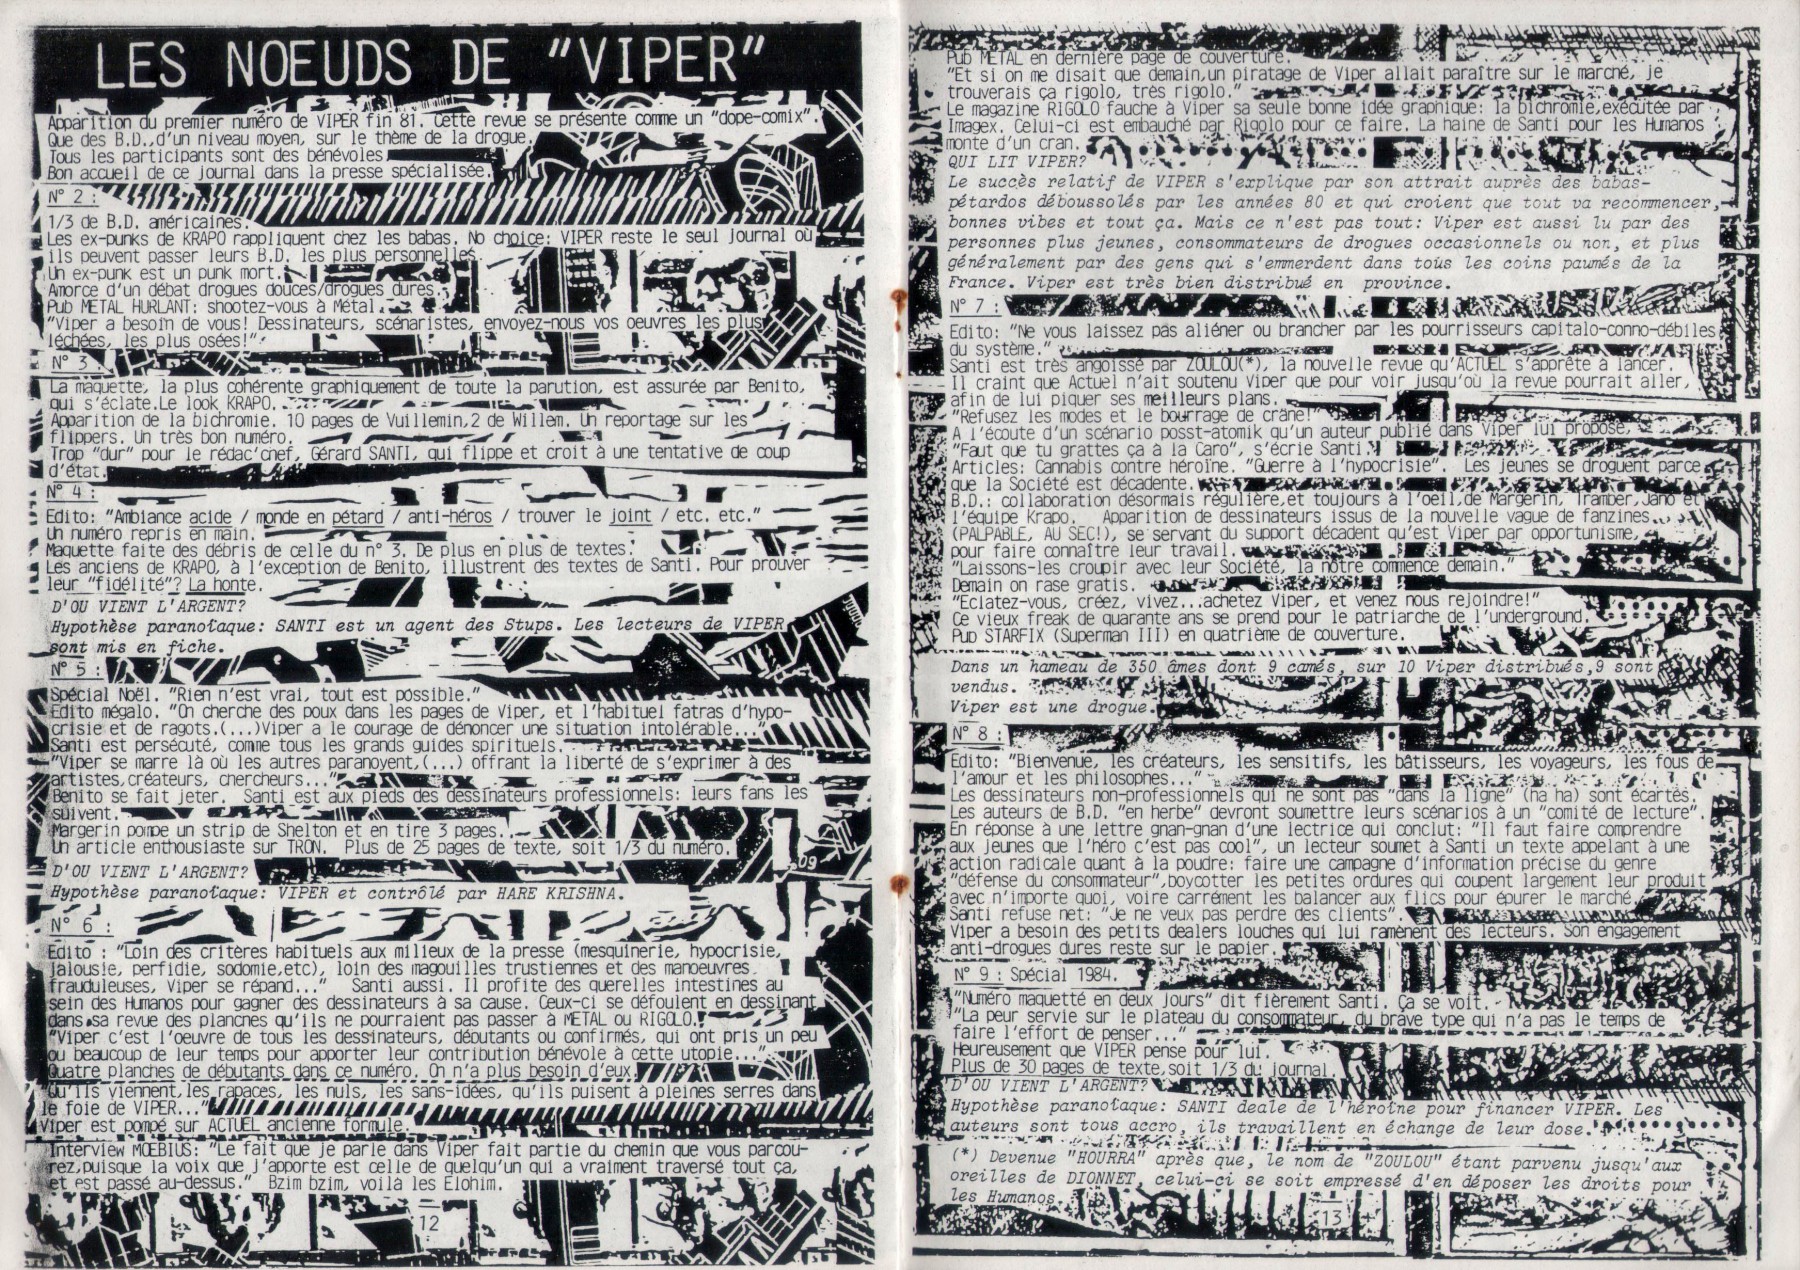 LES NOEUDS DE "VIPER"
Apparition du premier numéro de VIPER fin 81. Cette revue se présente comme un "dope-comix".
Que des B.D.,d'un niveau moyen, sur le thème de la drogue.
Tous les participants sont des bénévoles
Bon accueil de ce journal dans la presse spécialisée.
N° 2 :
1/3 de B.D. américaines.
Les ex-punks de KRAPO rappliquent chez les babas. No choice: VIPER reste le seul Journal où
ils peuvent passer leurs B.D. les plus personnelles
Un ex-punk est un punk mort.
Amorce d'un débat drogues douces/drogues dures.
Pub METAL HURLANT: shootez-vous à Métal.
"Viper a besoin de vous! Dessinateurs, scénaristes, envoyez-nous vos oeuvres les plus
léchées, les plus osées!"
N° 3
La maquette, la plus cohérente graphiquement de toute la parution, est assurée par Benito,
qui s'éclate.Le look KRAPO.
Apparition de la bichromie. 10 pages de Vuillemin,2 de Willem. Un reportage sur les
flippers. Un très bon numéro.
Trop "dur" pour le rédac'chef, Gérard SANTI, qui flippe et croit à une tentative de coup
d'état.
N° 4 :
Edito: "Ambiance acide / monde en pétard / anti-héros / trouver le joint / etc. etc."
Un numéro repris en main.
Maquette faite des débris de celle du n° 3. De plus en plus de textes.
Les anciens de KRAPO, à l'exception de Benito, illustrent des textes de Santi. Pour prouver
leur "fidélité"? La honte.
D'OU VIENT L'ARGENT?
Hypothèse paranoïaque: SANTI est un agent des Stups. Les lecteurs de VIPER
sont mis en fiche.
N° 5 :
Spécial Noël. "Rien n'est vrai, tout est possible."
Edito mégalo. "On cherche des poux dans les pages de Viper, et l'habituel fatras d'hypo-
crisie et de ragots.(...)Viper a le courage de dénoncer une situation intolérable..."
Santi est persécuté, comme tous les grands guides spirituels.
"Viper se marre là où les autres paranoyent,(...) offrant la liberté de s'exprimer à des
artistes,créateurs, chercheurs..."
Benito se fait jeter. Santi est aux pieds des dessinateurs professionnels: leurs fans les
suivent.
Margerin pompe un strip de Shelton et en tire 3 pages.
Un article enthousiaste sur TRON. Plus de 25 pages de texte, soit 1/3 du numéro.
D'OU VIENT L'ARGENT?
Hypothèse paranoïaque: VIPER et contrôlé par HARE KRISHNA.
N° 6 :
Edito : "Loin des critères habituels aux milleux de la presse (mesquinerie, hypocrisie,
jalousie, perfidie, sodomie,etc), loin des magouilles trustiennes et des manoeuvres
frauduleuses, Viper se répand..." Santi aussi. Il profite des querelles intestines au
sein des Humanos pour gagner des dessinateurs à sa cause. Ceux-ci se défoulent en dessinant
dans sa revue des planches qu'ils ne pourraient pas passer à METAL ou RIGOLO.
"Viper c'est l'oeuvre de tous les dessinateurs, déoutants ou confirmés, qui ont pris un peu
ou beaucoup de leur temps pour apporter leur contribution bénévole à cette utopie..."
Quatre planches de débutants dans ce numéro. On n'a plus besoin d'eux.
Qu'ils viennent,les rapaces, les nuls, les sans-idées, qu'ils puisent à pleines serres dans
le foie de VIPER..."
Viper est pompé sur ACTUEL ancienne formule.
Interview MOEBIUS: "Le fait que je parle dans Viper fait partie du chemin que vous parcou-
rez,puisque la voix que j'apporte est celle de quelqu'un qui a vraiment traversé tout ça,
et est passé au-dessus." Bzim bzim, voilà les Elohim.
12
Pub METAL en dernière page de couverture.
"Et si on me disait que demain,un piratage de Viper allait paraître sur le marché, je
trouverais ça rigolo, très rigolo."
Le magazine RIGOLO fauche à Viper sa seule bonne idée graphique: la bichromie,exécutée par
Imagex. Celui-ci est embauché par Rigolo pour ce faire. La haine de Santi pour les Humanos
monte d'un cran.
QUI LIT VIPER?
Le succès relatif de VIPER s'explique par son attrait auprès des babas-
pétardos déboussolés par les années 80 et qui croient que tout va recommencer,
bonnes vibes et tout ça. Mais ce n'est pas tout: Viper est aussi lu par des
personnes plus jeunes, consommateurs de drogues occasionnels ou non, et plus
généralement par des gens qui s'emmerdent dans tous les coins paumés de la
France. Viper est très bien distribué en province.
N° 7 :
Edito: "Ne vous laissez pas aliéner ou brancher par les pourrisseurs capitalo-conno-débiles
du système."
Santi est très angoissé par ZOULOU(*), la nouvelle revue qu'ACTUEL s'apprête à lancer.
Il craint que Actuel n'ait soutenu Viper que pour voir jusqu'où la revue pourrait aller,
afin de lui piquer ses meilleurs plans.
"Refusez les modes et le bourrage de crâne!"
A l'écoute d'un scénario posst-atomik qu'un auteur publié dans Viper lui propose,
"Faut que tu grattes ça à la Caro", s'écrie Santi.
Articles: Cannabis contre héroïne. "Guerre à l'hypocrisie". Les jeunes se droguent parce
que la Société est décadente.
B.D.: collaboration désormais régulière,et toujours à l'oeil,de Margerin, Tramber,Jano et
l'équipe Krapo. Apparition de dessinateurs issus de la nouvelle vague de fanzines
(PALPABLE, AU SEC!), se servant du support décadent qu'est Viper par opportunisme,
pour faire connaître leur travail.
"Laissons-les croupir avec leur Société, la nôtre commence demain."
Demain on rase gratis.
"Eclatez-vous, créez, vivez...achetez Viper, et venez nous rejoindre!"
Ce vieux freak de quarante ans se prend pour le patriarche de l'underground.
Pub STARFIX (Superman III) en quatrième de couverture.
Dans un hameau de 350 âmes dont 9 camés, sur 10 Viper distribués,9 sont
vendus.
Viper est une drogue.
N° 8 :
Edito: "Bienvenue, les créateurs, les sensitifs, les bâtisseurs, les voyageurs, les fous de
l'amour et les philosophes..."
Les dessinateurs non-professionnels qui ne sont pas "dans la ligne" (ha ha) sont écartés.
Les auteurs de B.D. "en herbe" devront soumettre leurs scénarios à un "comité de lecture".
En réponse à une lettre gnan-gnan d'une lectrice qui conclut: "Il faut faire comprendre
aux jeunes que l'héro c'est pas cool", un lecteur soumet à Santi un texte appelant à une
action radicale quant à la poudre: faire une campagne d'information précise du genre
"défense du consommateur",boycotter les petites ordures qui coupent largement leur produit
avec n'importe quoi, voire carrément les balancer aux flics pour épurer le marché.
Santi refuse net: "Je ne veux pas perdre des clients".
Viper a besoin des petits dealers louches qui lui ramènent des lecteurs. Son engagement
anti-drogues dures reste sur le papier.
N° 9 : Spécial 1984.
"Numéro maquetté en deux jours" dit fièrement Santi. Ça se voit.
"La peur servie sur le plateau du consommateur, du brave type qui n'a pas le temps de
faire l'effort de penser..."
Heureusement que VIPER pense pour lui.
Plus de 30 pages de texte,soit 1/3 du journal.
D'OU VIENT L'ARGENT?
Hypothèse paranoïaque: SANTI deale de l'héroïne pour financer VIPER. Les
auteurs sont tous accro, ils travaillent en échange de leur dose.
(*) Devenue "HOURRA" après que, le nom de "ZOULOU" étant parvenu jusqu'aux
oreilles de DIONNET, celui-ci se soit empressé d'en déposer les droits pour
les Humanos.
13